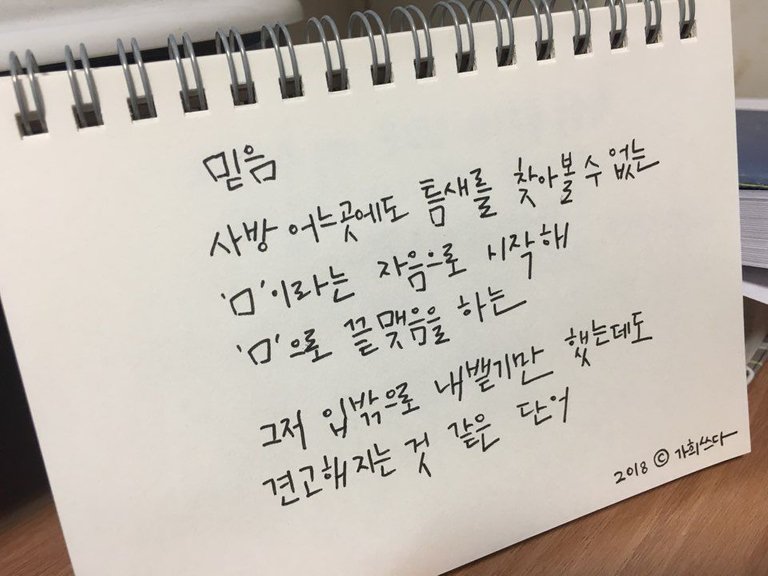 믿음
사방 어느곳에도 틈새를 찾아볼 수 없는
'ㅁ'이라는 자음으로 시작해
'ㅁ'으로 끝맺음을 하는
그저 입밖으로 내뱉기만 했는데도
견고해지는 것 같은 단어
2018 © 가희쓰다